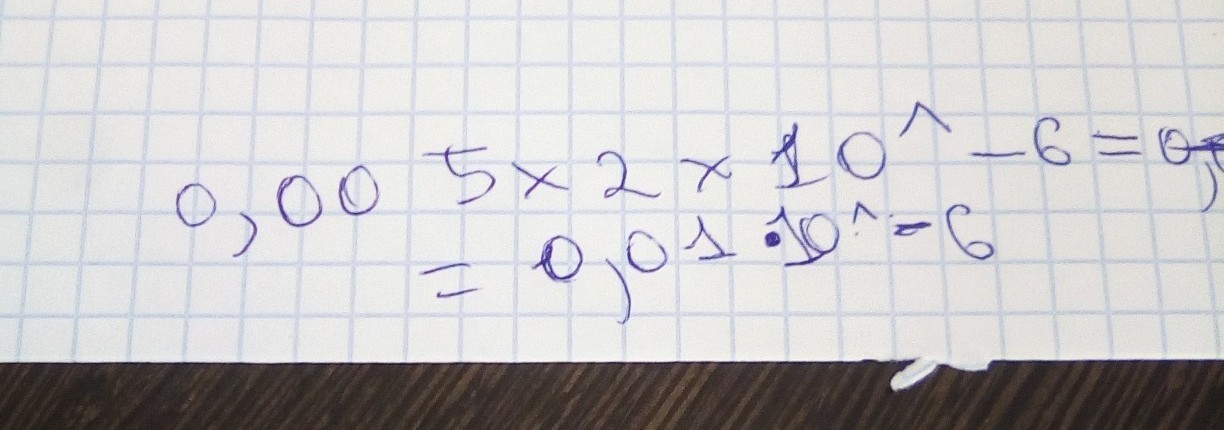 0,005 × 2 × 10^-6 =
= 0,01 · 10^-6